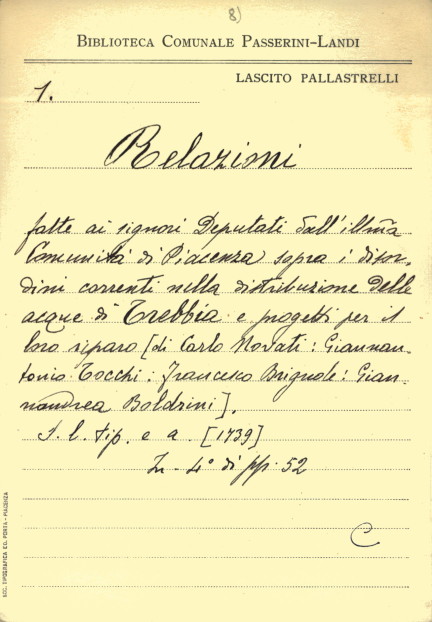 8)
BIBLIOTECA COMUNALE PASSERINI-LANDI
LASCITO PALLASTRELLI
1.
Relazioni
fatte ai signori Deputati dall'illm̃a
Comunità di Piacenza sopra i disor-
dini correnti nella distribuzione delle
acque di Trebbia e progetti per il
loro riparo [di Carlo Novati: Giannan-
tonio Tocchi: Francesco Brignole: Gian-
nandrea Boldrini].
S. l. tip. e a. [1739]
In-4° di pp. 52
C
SOC. TIPOGRAFICA ED. PORTA - PIACENZA